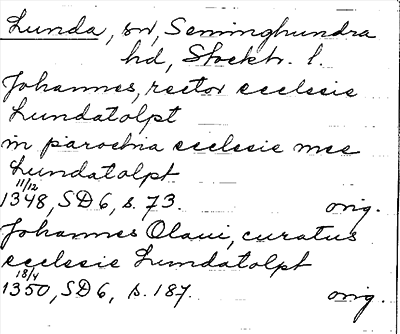 Lunda, sn, Seminghundra
hd, Stockh. l.
Johannes, rector ecclesie
Lundatolpt
in parochia ecclesie mee
Lundatolpt
11/12
1348, SD 6, s. 73. orig.
Johannes Olaui, curatus
ecclesie Lundatolpt
18/4
1350, SD 6, s. 187. orig.